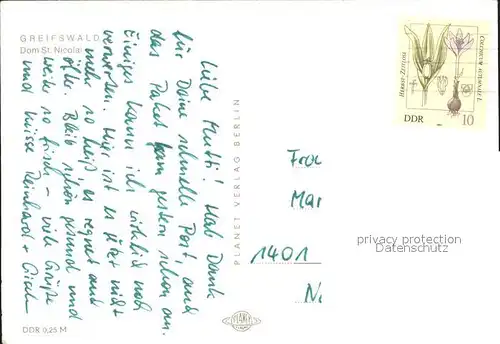 GREIFSWALD
Dom St. Nicolai
Liebe Mutti! Hab Dank
für Deine schnelle Post, und
das Paket kam gestern schon an.
Einiges kann ich wirklich noch
verwerten. Hier ist es jetzt nicht
mehr so heiß, es regnet auch
öfter. Bleib schön gesund und
weiter so frisch – viele Grüße
und Küsse Reinhard +
PLANET VERLAG BERLIN
DDR 0,25 M
PLANET
HERBST-ZEITLOSE
COLCHICUM AUTUMNALE L.
DDR
10
Frau
Mar
privacy protection
www.ansichtskarten-center.de
1401
N